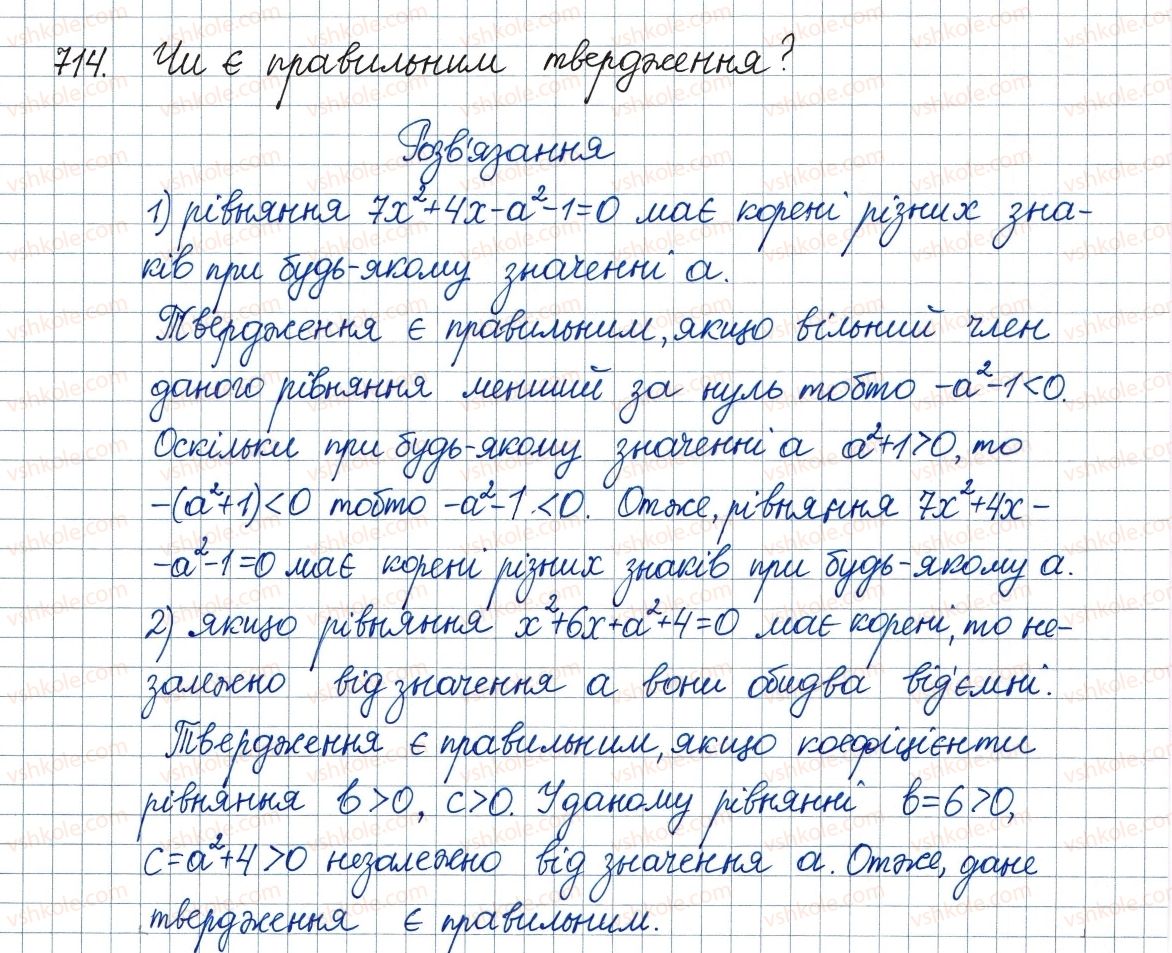 714. Чи є правильним твердження?
Розв'язання
1) рівняння 7x²+4x-a²-1=0 має корені різних зна-
ків при будь-якому значенні a.
Твердження є правильним, якщо вільний член
даного рівняння менший за нуль тобто -a²-1<0.
Оскільки при будь-якому значенні a a²+1>0, то
-(a²+1)<0 тобто -a²-1<0. Отже, рівняння 7x²+4x-
-a²-1=0 має корені різних знаків при будь-якому a.
2) якщо рівняння x²+6x+a²+4=0 має корені, то не-
залежно від значення a вони обидва від'ємні.
Твердження є правильним, якщо коефіцієнти
рівняння b>0, c>0. У даному рівнянні b=6>0,
c=a²+4>0 незалежно від значення a. Отже, дане
твердження є правильним.